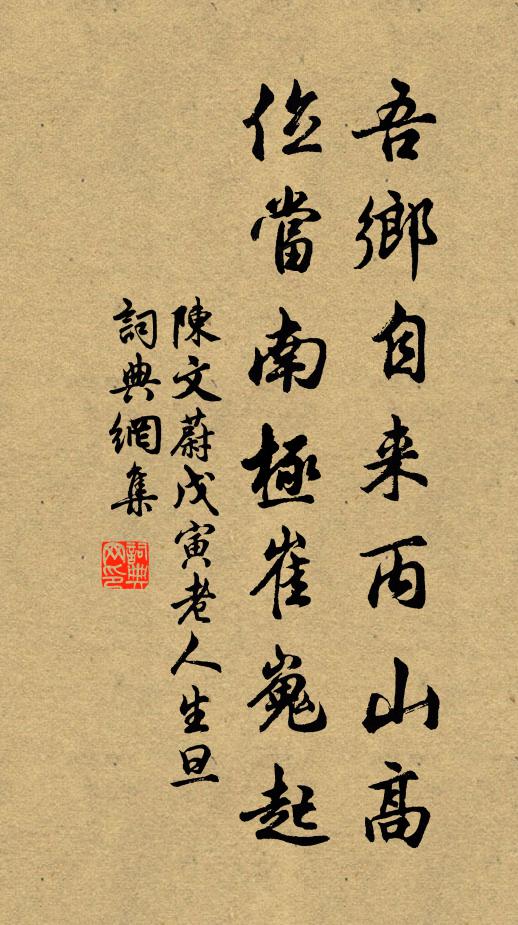 吾鄉自来丙山高
位當南極崔嵬起
陳文蔚戊寅老人生旦
詞典網集
詞典网印